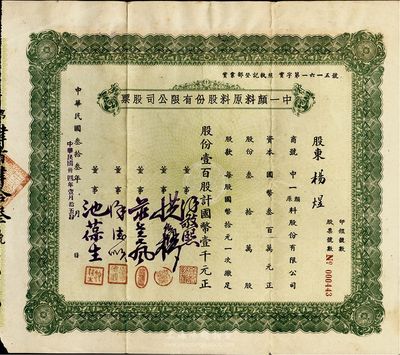 實業部登記執照 實字第一六一五號
中一顏料原料股份有限公司股票
股東 楊煜
印領號數
股票號數 No 000443
商號 中一顏料原料股份有限公司
資本 國幣叁百萬元正
股份 叁拾萬股
股款 每股國幣拾元一次繳足
股份壹百股計國幣壹千元正
董事
董事
董事
董事
董事 池葆生
中華民國叁拾叁年 月 日